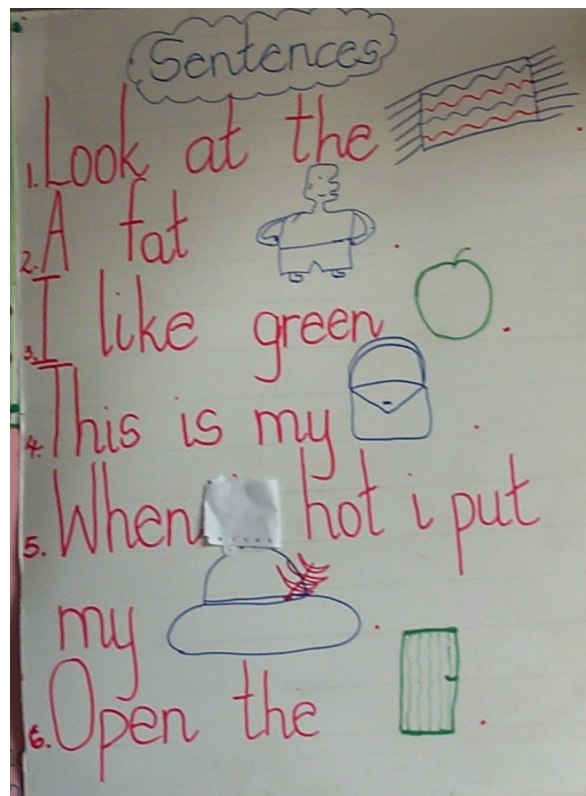 Sentences
1. Look at the .
2. A fat .
3. I like green .
4. This is my .
5. When hot i put
my .
6. Open the .